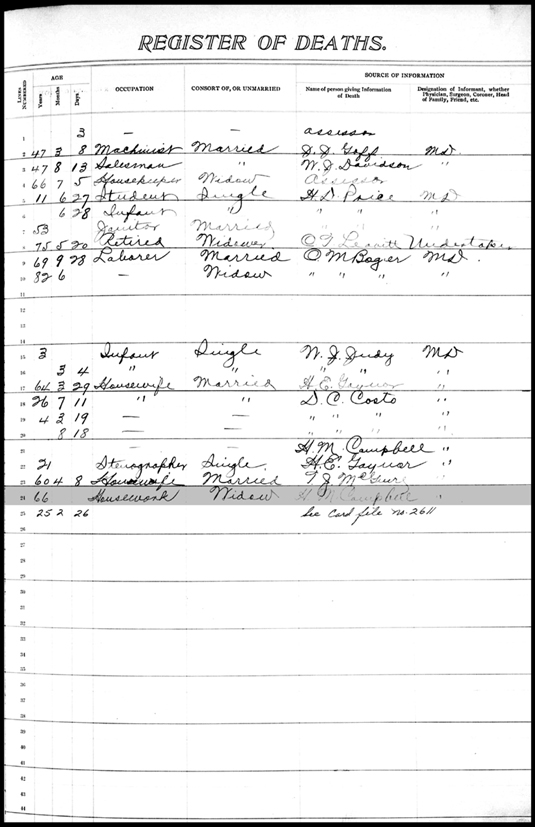 REGISTER OF DEATHS.
LINES NUMBERED
AGE
Years
Months
Days
OCCUPATION
CONSORT OF, OR UNMARRIED
SOURCE OF INFORMATION
Name of person giving Information of Death
Designation of Informant, whether Physician, Surgeon, Coroner, Head of Family, Friend, etc.
1 — — assessor
2 47 3 8 Machinist Married J. J. Goff M.D.
3 47 8 13 Salesman " W. J. Davidson "
4 66 7 5 Housekeeper Widow Assessor
5 11 6 27 Student Single H. D. Price M D
6 6 28 Infant " " " " "
7 53 Janitor Married " " " "
8 75 5 20 Retired Widower O F Leavitt Undertaker
9 69 9 28 Laborer Married O. M Bogier M.D.
10 82 6 — Widow " " " "
11
12
13
14
15 3 Infant Single W. J. Judy M D
16 3 4 " " " " " "
17 64 3 29 Housewife Married H. E. Gaynor "
18 26 7 11 " " D. C. Costo "
19 4 3 19 — — " " " "
20 8 18 — — " " " "
21 H. M. Campbell "
22 21 Stenographer Single H. E. Gaynor "
23 60 4 8 Housewife Married T J McGuire "
24 66 Housework Widow H M Campbell "
25 25 2 26 See Card file no. 2611
26
27
28
29
30
31
32
33
34
35
36
37
38
39
40
41
42
43
44